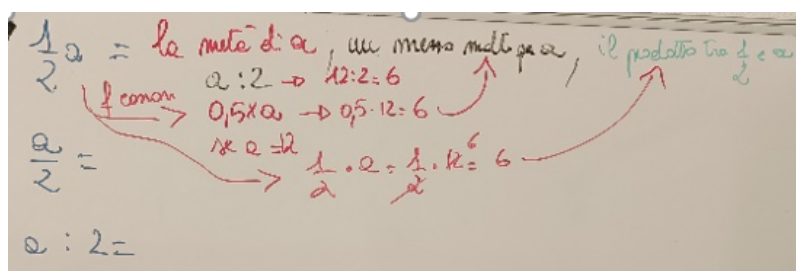 1/2 a = la metà di a, un mezzo molt per a, il prodotto tra 1/2 e a
a : 2 → 12:2=6
0,5×a → 0,5·12=6
se a=12
1/2 · a = 1/2 · 12 = 6 6
a/2 =
a : 2 =